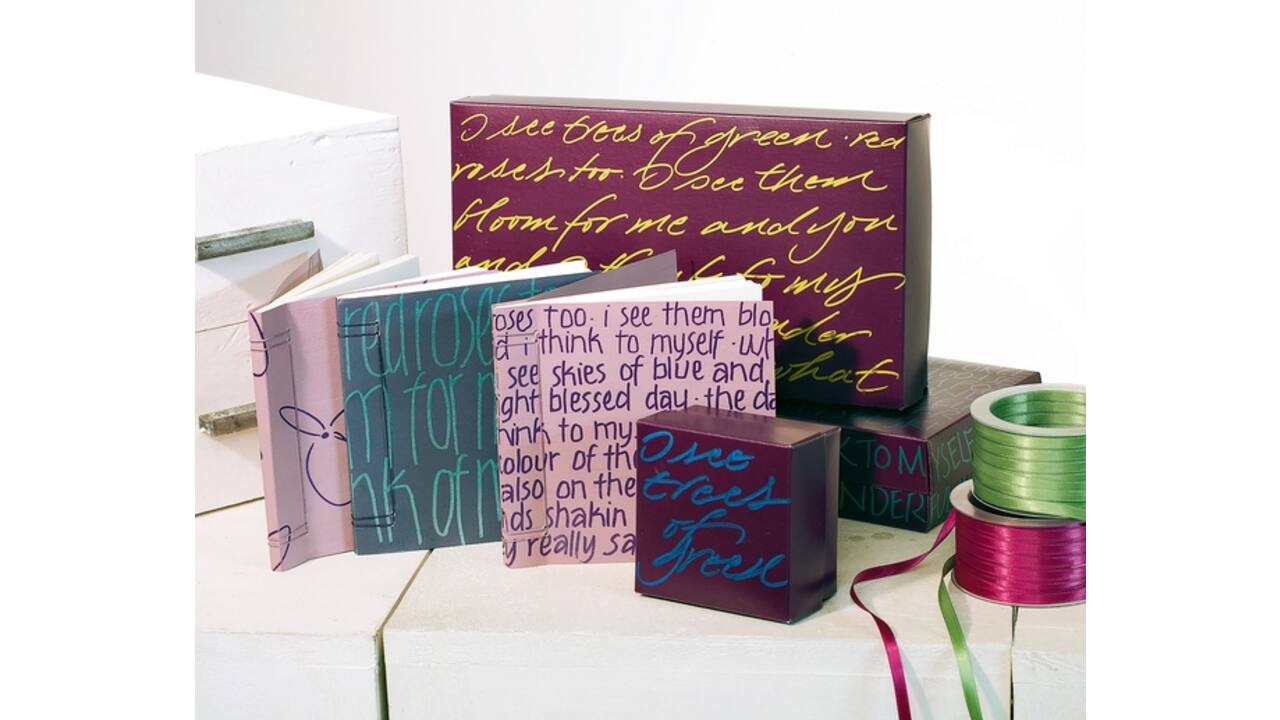 I see trees of green · red
roses too. I see them
bloom for me and you
and to my
what
red roses
m for m
nk of m
oses too. i see them blo
d i think to myself · wh
see skies of blue and
ght blessed day · the da
hink to my
olour of th
also on the
ds shakin
y really sa
I see
trees
of
green
K TO MYSELF
NDERFU